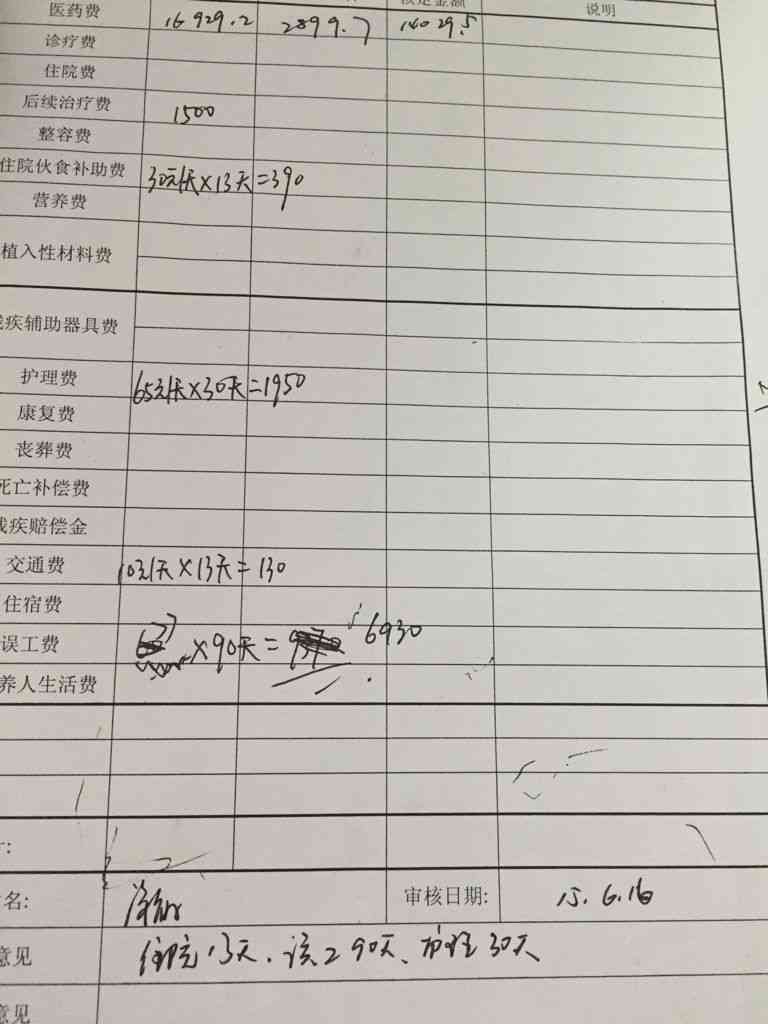 医药费 16929.2 2899.7 14029.5 说明
诊疗费
住院费
后续治疗费 1500
整容费
住院伙食补助费 30元/天×13天=390
营养费
植入性材料费
疾辅助器具费
护理费 65元/天×30天=1950
康复费
丧葬费
死亡补偿费
残疾赔偿金
交通费 10元/天×13天=130
住宿费
误工费 ×90天= 6930
养人生活费
名: 审核日期: 15.6.16
意见 住院13天、误工90天、护理30天
意见